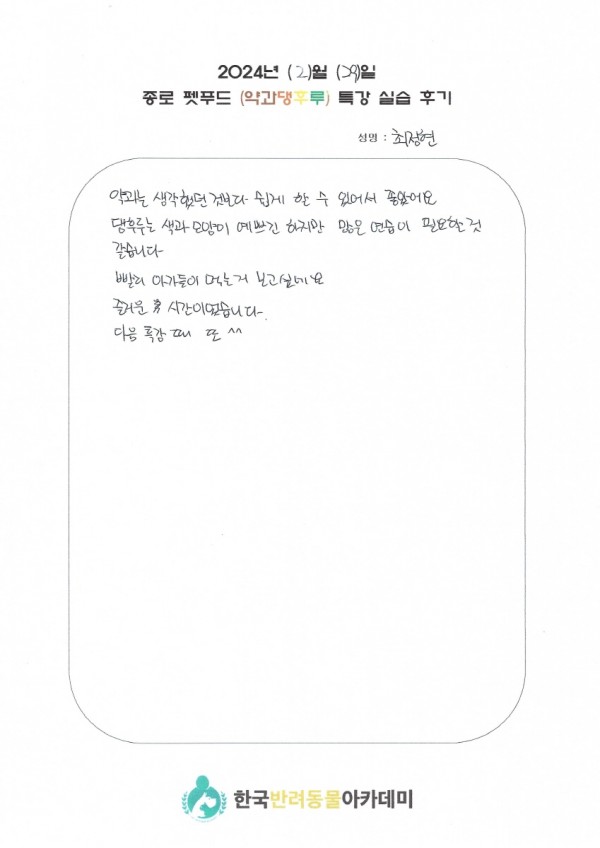 2024년 (2)월 (29)일
종로 펫푸드 (약과댕후루) 특강 실습 후기
성명 : 최정현
약과는 생각했던 것보다 쉽게 할 수 있어서 좋았어요
댕후루는 색과 모양이 예쁘긴 하지만 많은 연습이 필요한 것
같습니다
빨리 아가들이 먹는거 보고싶네요
즐거운 시간이었습니다.
다음 특강 때 또 ^^
한국반려동물아카데미